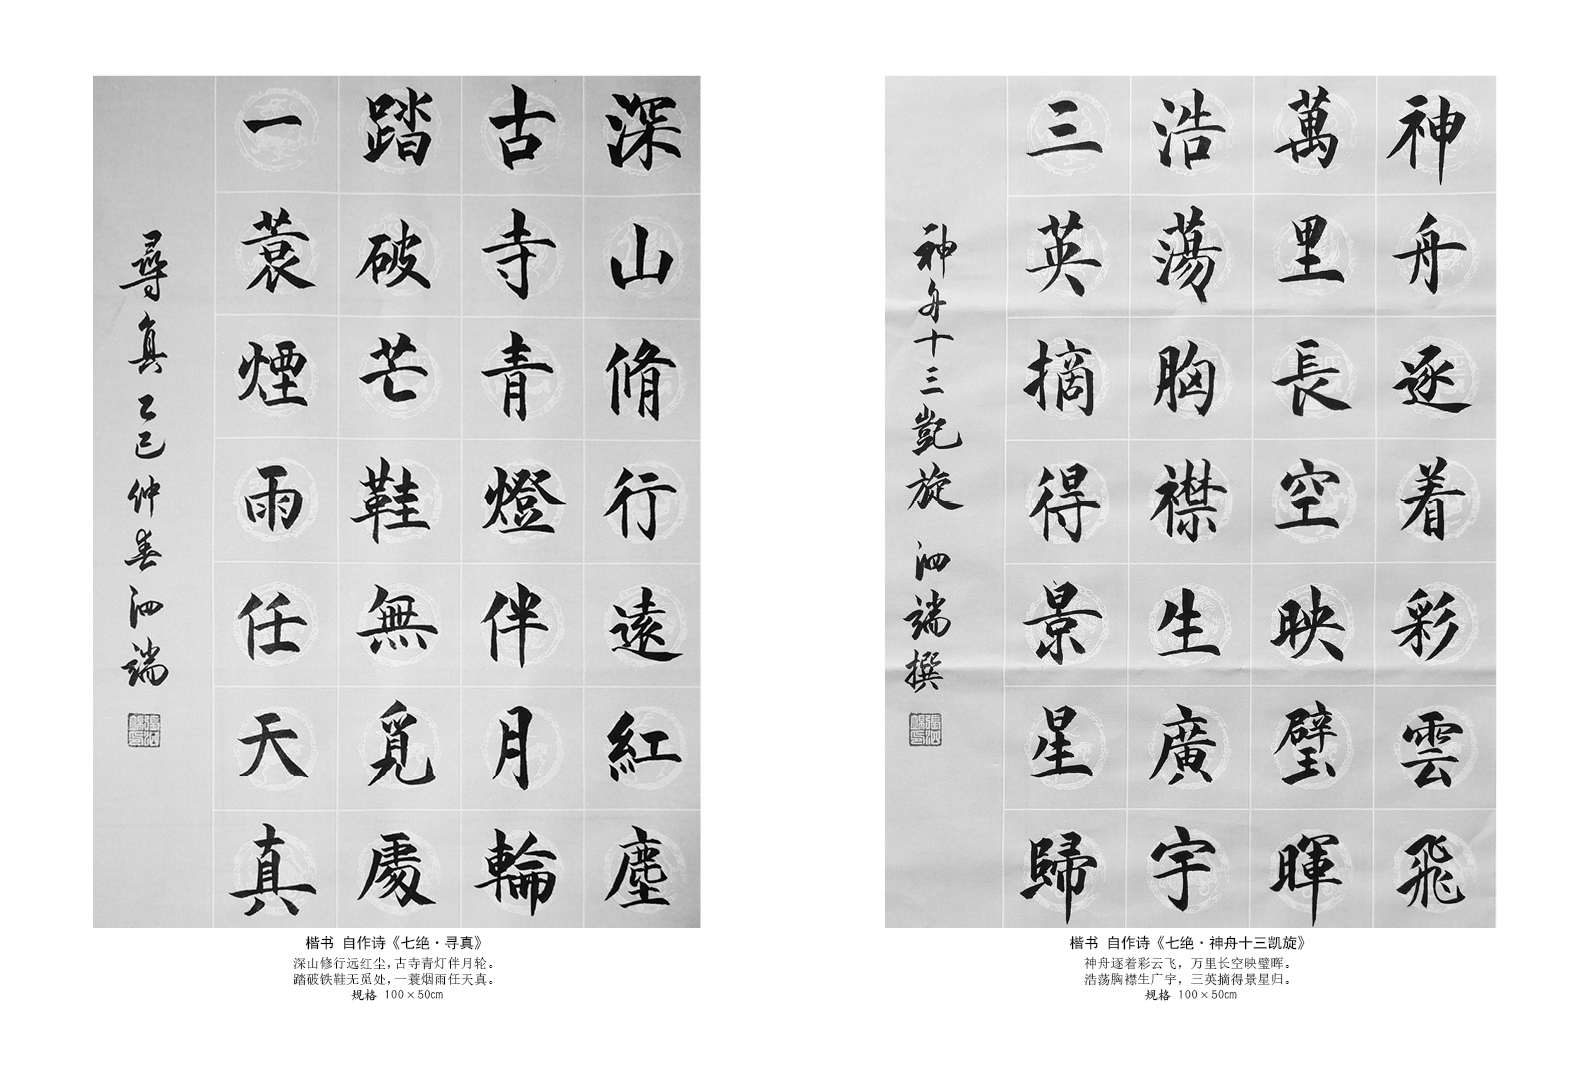 深山脩行遠紅塵
古寺青燈伴月輪
踏破芒鞋無覓處
一蓑煙雨任天真
尋真 乙巳仲春 泗端
楷书 自作诗《七绝·寻真》
深山修行远红尘，古寺青灯伴月轮。
踏破铁鞋无觅处，一蓑烟雨任天真。
规格 100×50cm
神舟逐着彩雲飛
萬里長空映璧暉
浩蕩胸襟生廣宇
三英摘得景星歸
神舟十三凱旋 泗端撰
楷书 自作诗《七绝·神舟十三凯旋》
神舟逐着彩云飞，万里长空映璧晖。
浩荡胸襟生广宇，三英摘得景星归。
规格 100×50cm